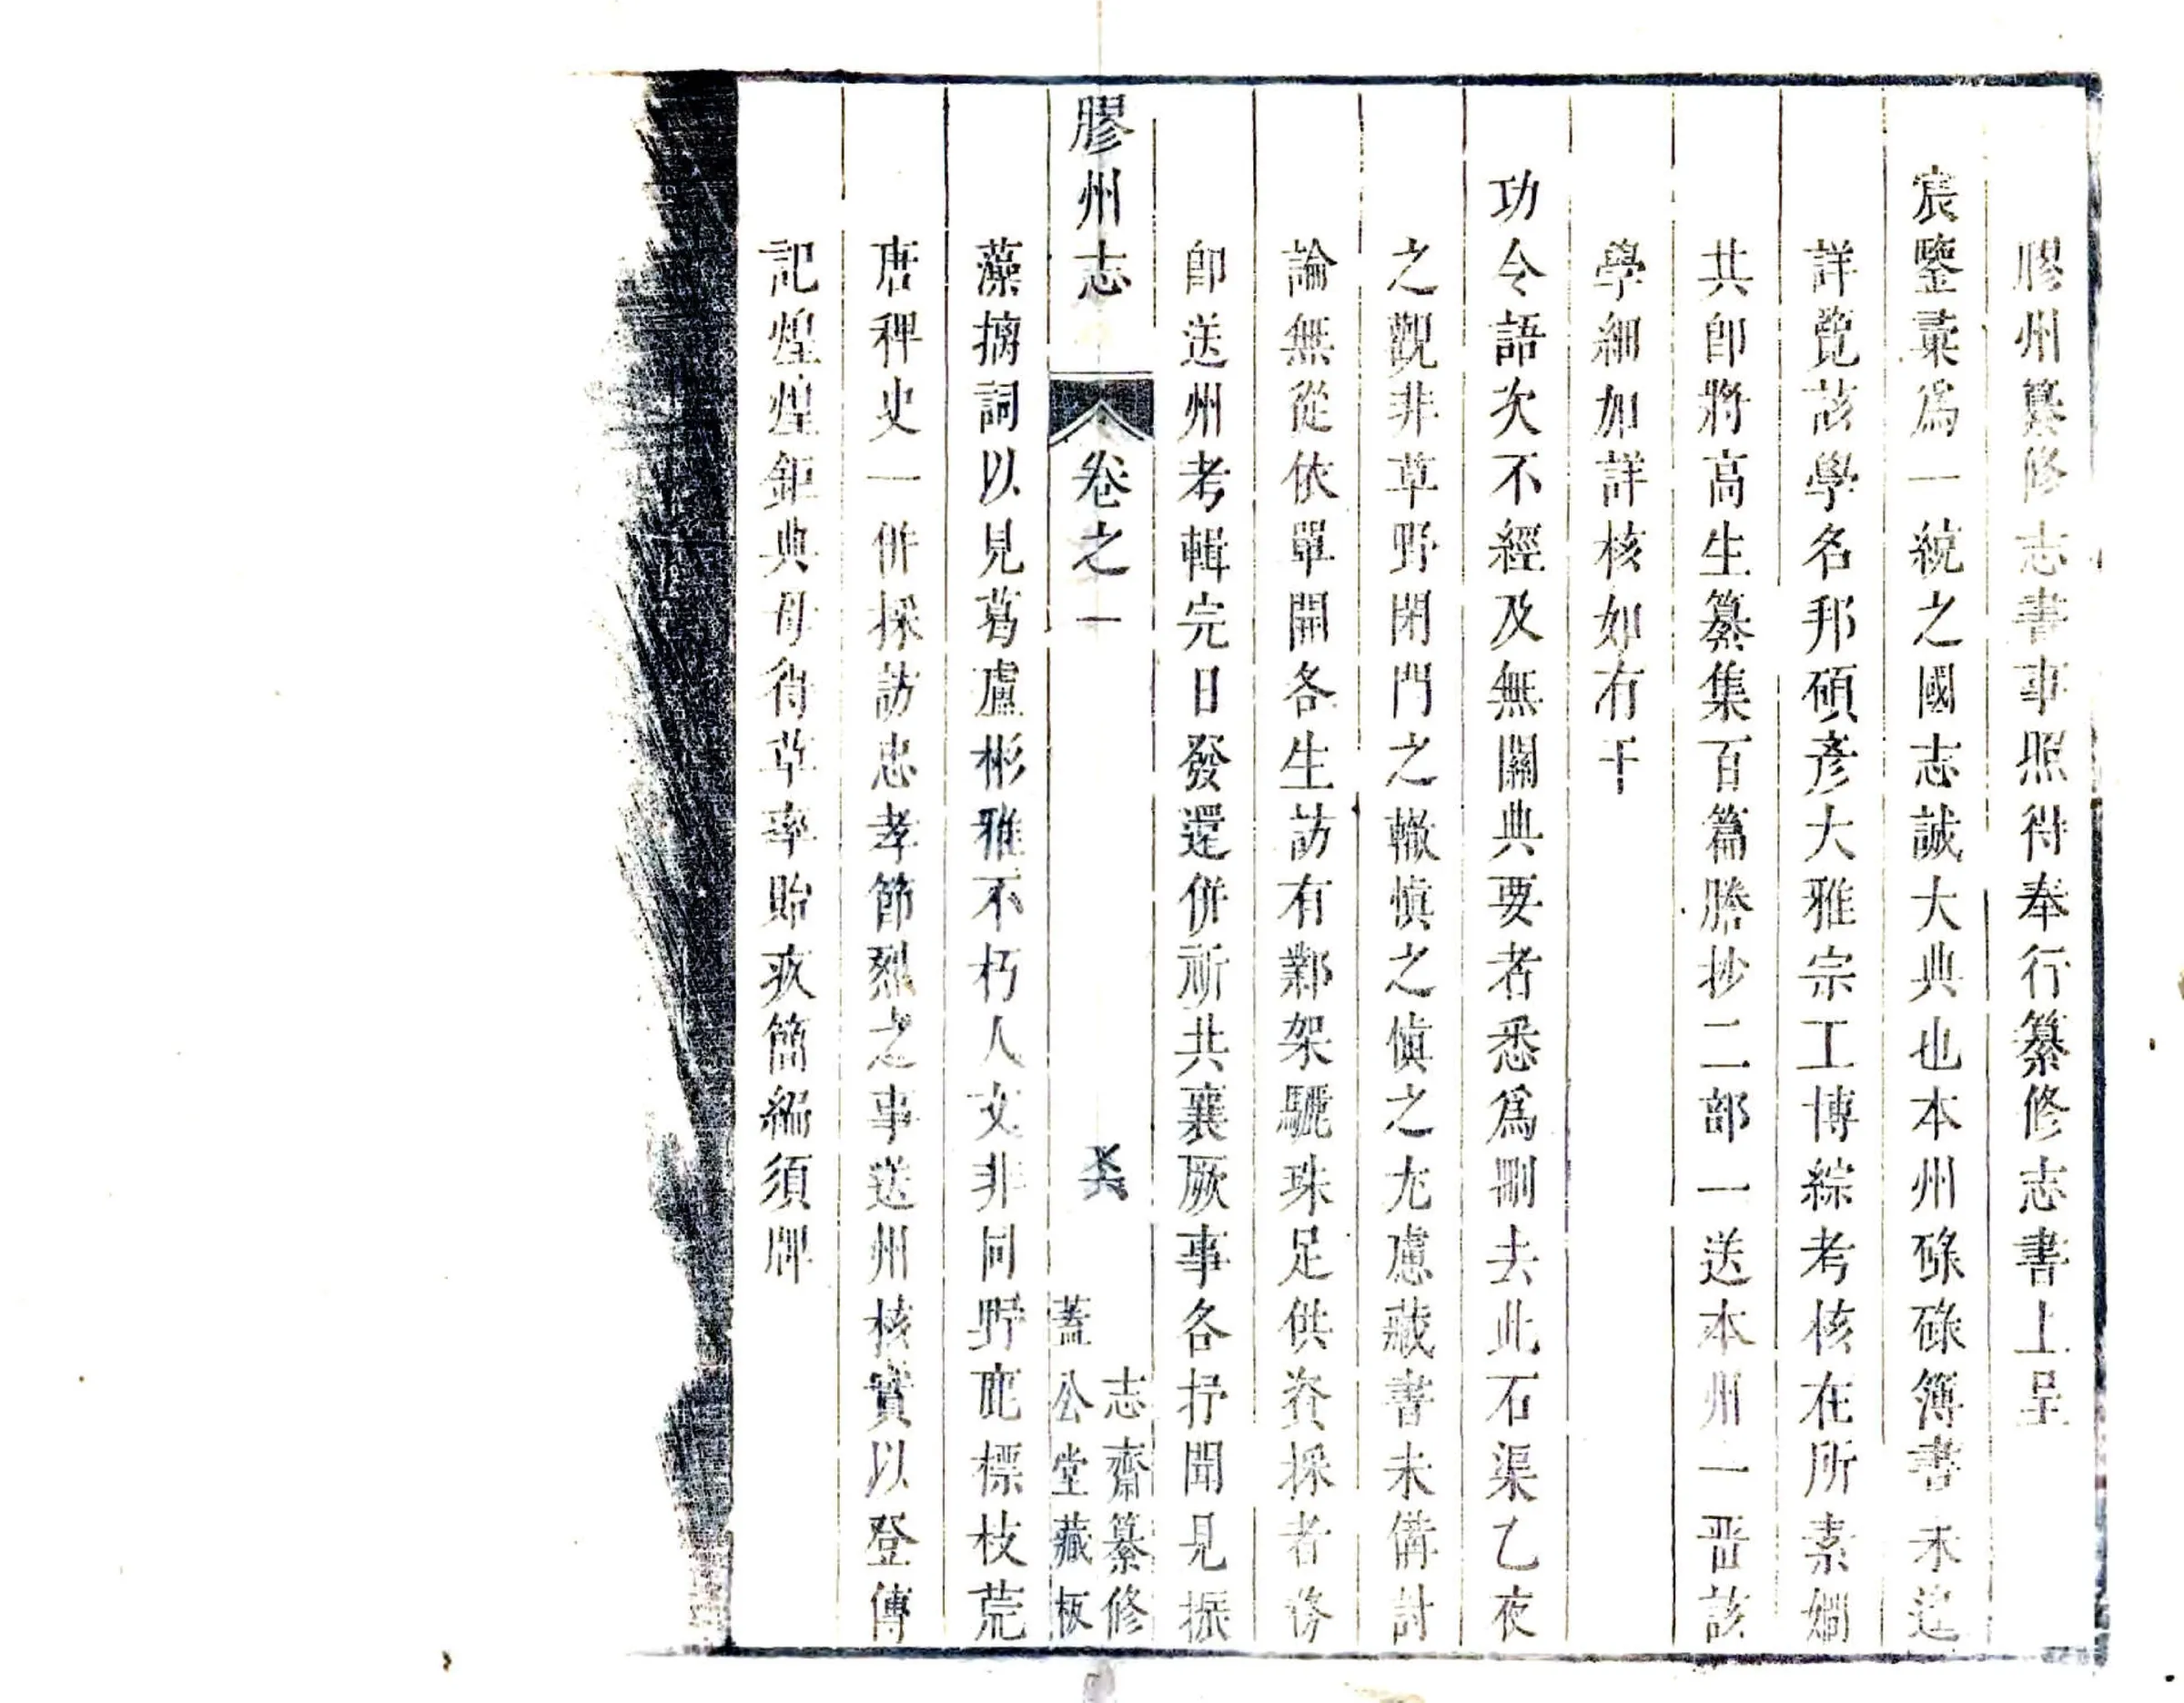 膠州纂修志書事照得奉行纂修志書上呈
宸鑒彚為一統之國志誠大典也本州碌碌簿書未遑
詳覽該學名邦碩彥大雅宗工博綜考核在所素嫺
共即將高生纂集百篇謄抄二部一送本州一晋該
學細加詳核如有干
功令語次不經及無關典要者悉爲刪去此石渠乙夜
之觀非草野閉門之轍慎之慎之尤慮藏書未備討
論無從依單開各生訪有鄴架驪珠足供資採者務
即送州考輯完日發還併祈共襄厥事各抒聞見振
膠州志
卷之一
志齋纂修
蓋公堂藏板
藻摛詞以見莒盧彬雅不朽人文非同野鹿標枝荒
唐稗史一併採訪忠孝節烈之事送州核實以登傳
記煌煌鉅典毋得草率貽玖簡編須牌